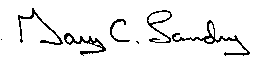 Mary C. Sandry